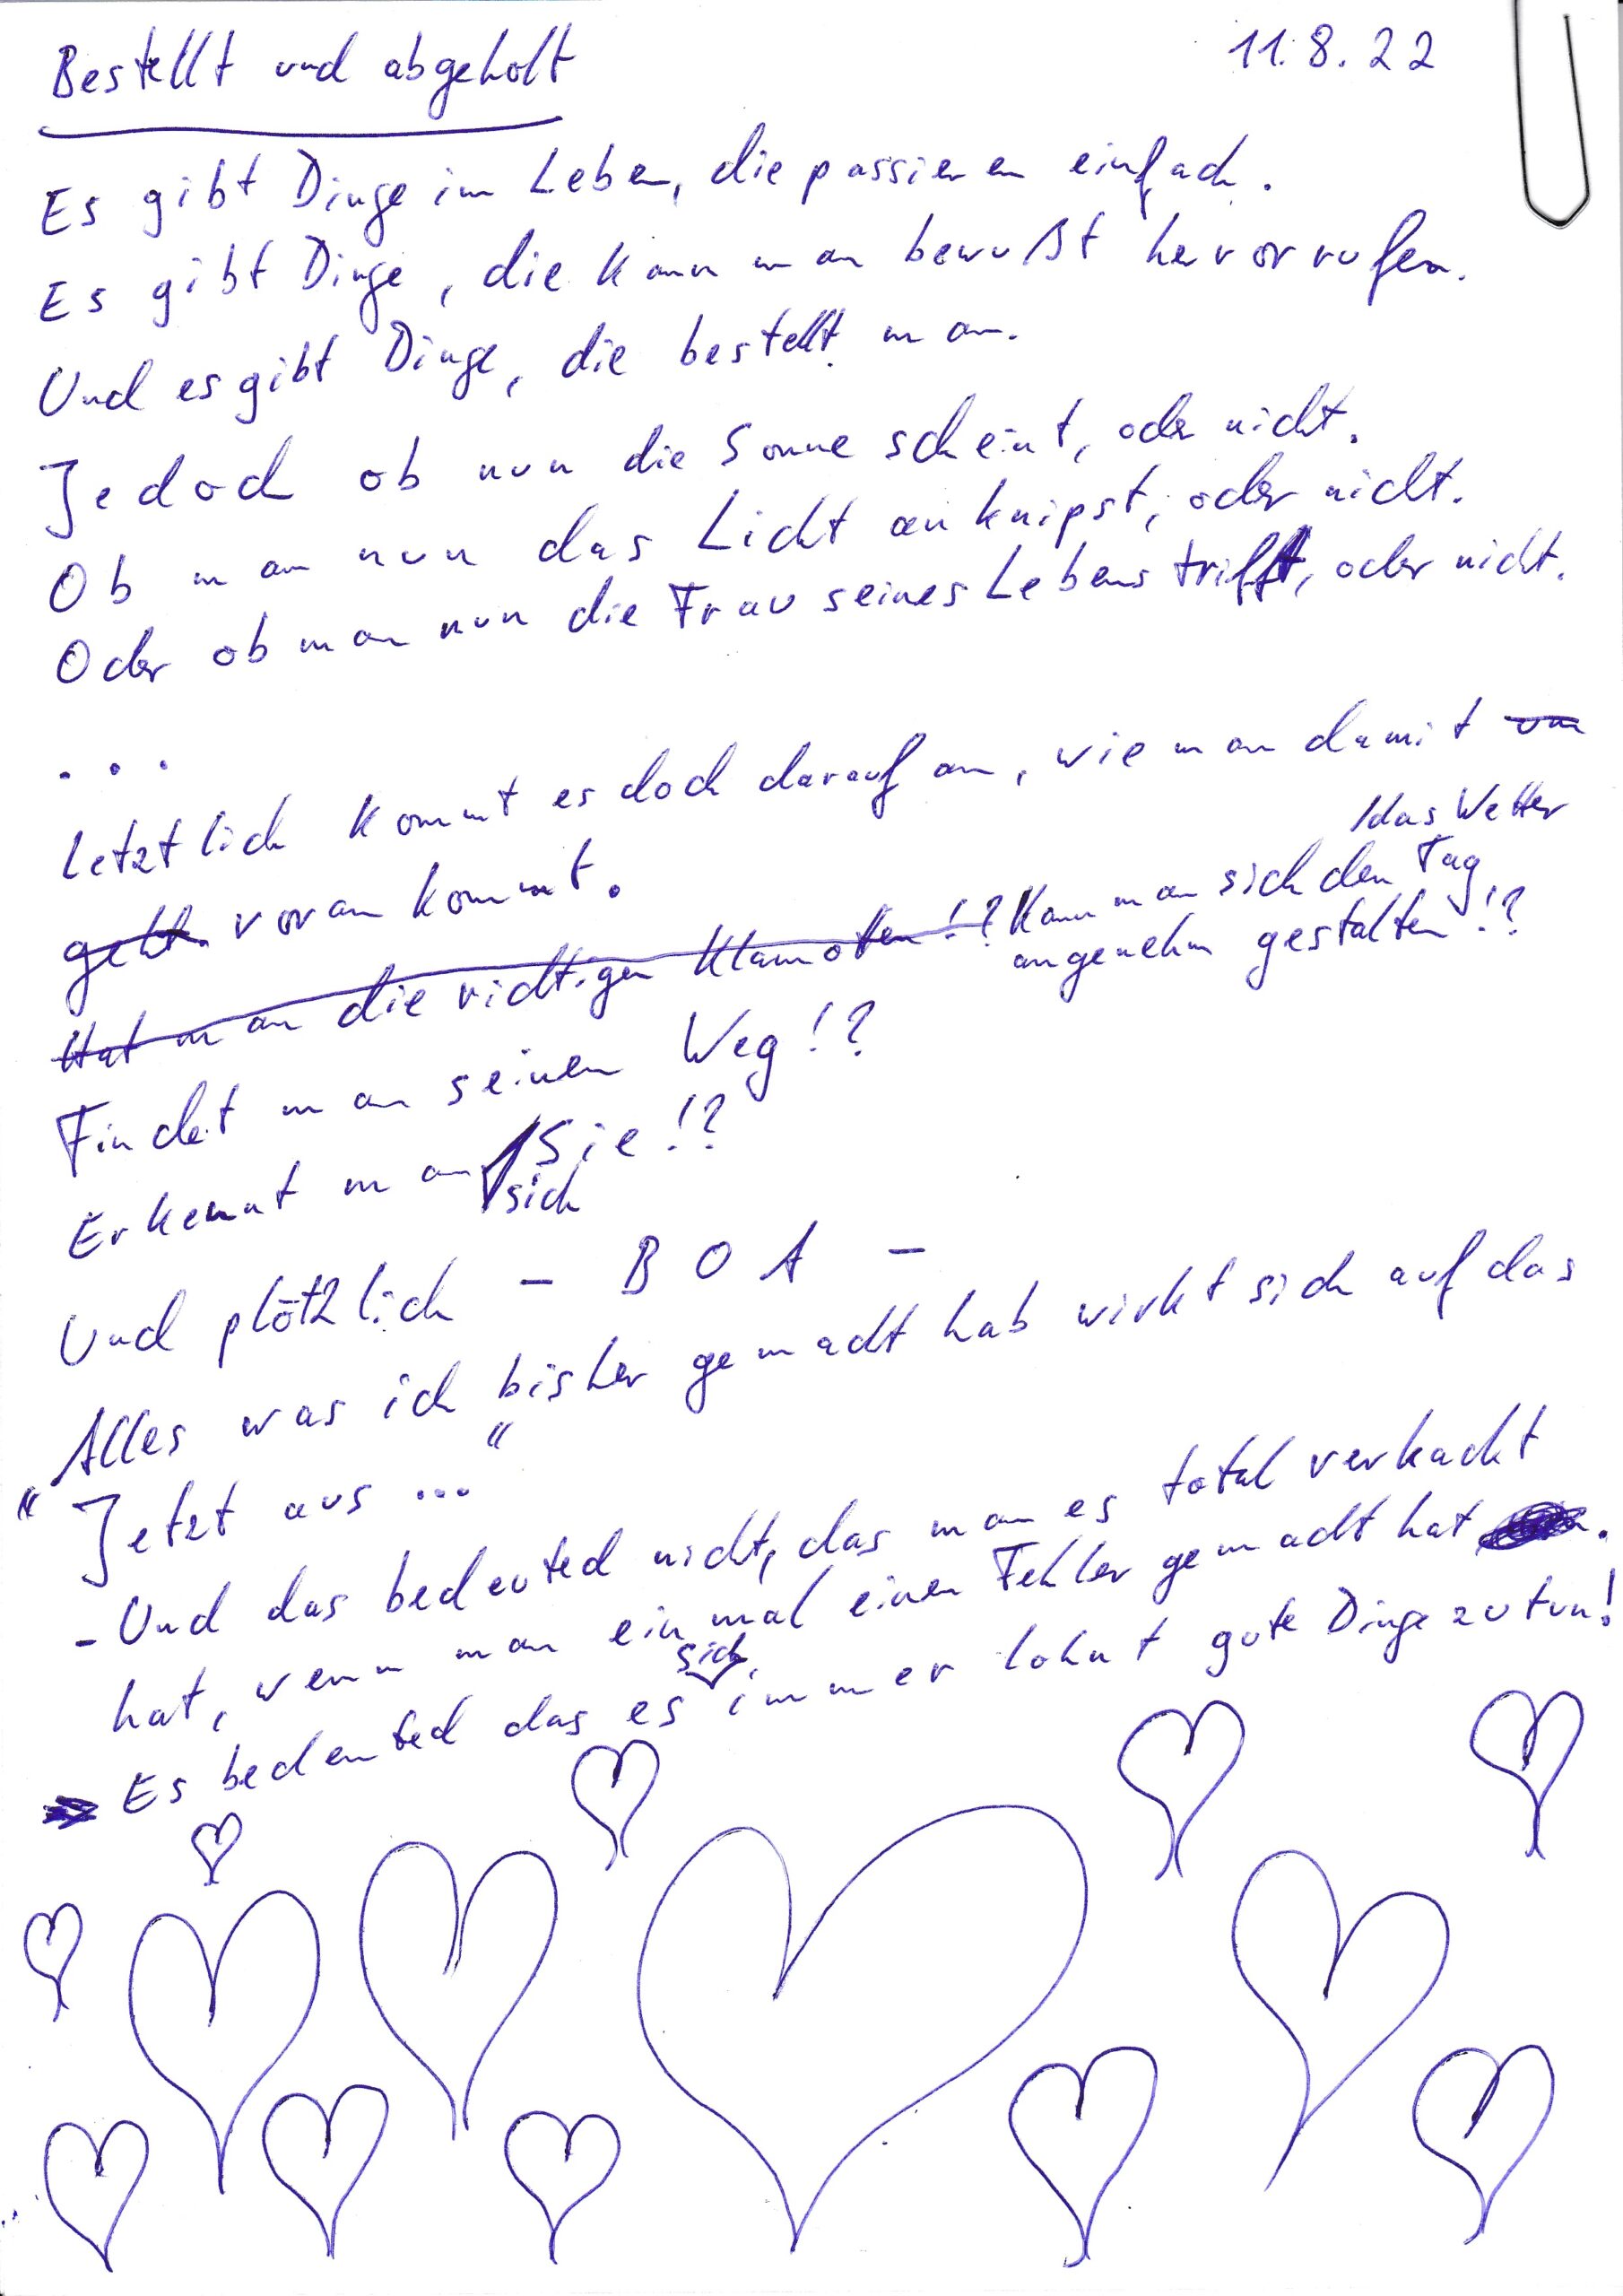 Bestellt und abgeholt 11.8.22
Es gibt Dinge im Leben, die passieren einfach.
Es gibt Dinge, die kann man bewußt hervorrufen.
Und es gibt Dinge, die bestellt man.
Jedoch ob nun die Sonne scheint, oder nicht.
Ob man nun das Licht anknipst, oder nicht.
Oder ob man nun die Frau seines Lebens trifft, oder nicht.
...
Letztlich kommt es doch darauf an, wie man damit um
geht. voran kommt.
/das Wetter
Hat man die richtigen Klamotten!? Kann man sich den Tag
angenehm gestalten!?
Findet man seinen Weg!?
Erkennt man Sie!?
sich
Und plötzlich - B O A -
"Alles was ich bisher gemacht hab wirkt sich auf das
Jetzt aus ..."
- Und das bedeuted nicht, das man es total verkackt
hat, wenn man einmal einen Fehler gemacht hat.
Es bedeuted das es sich immer lohnt gute Dinge zu tun!